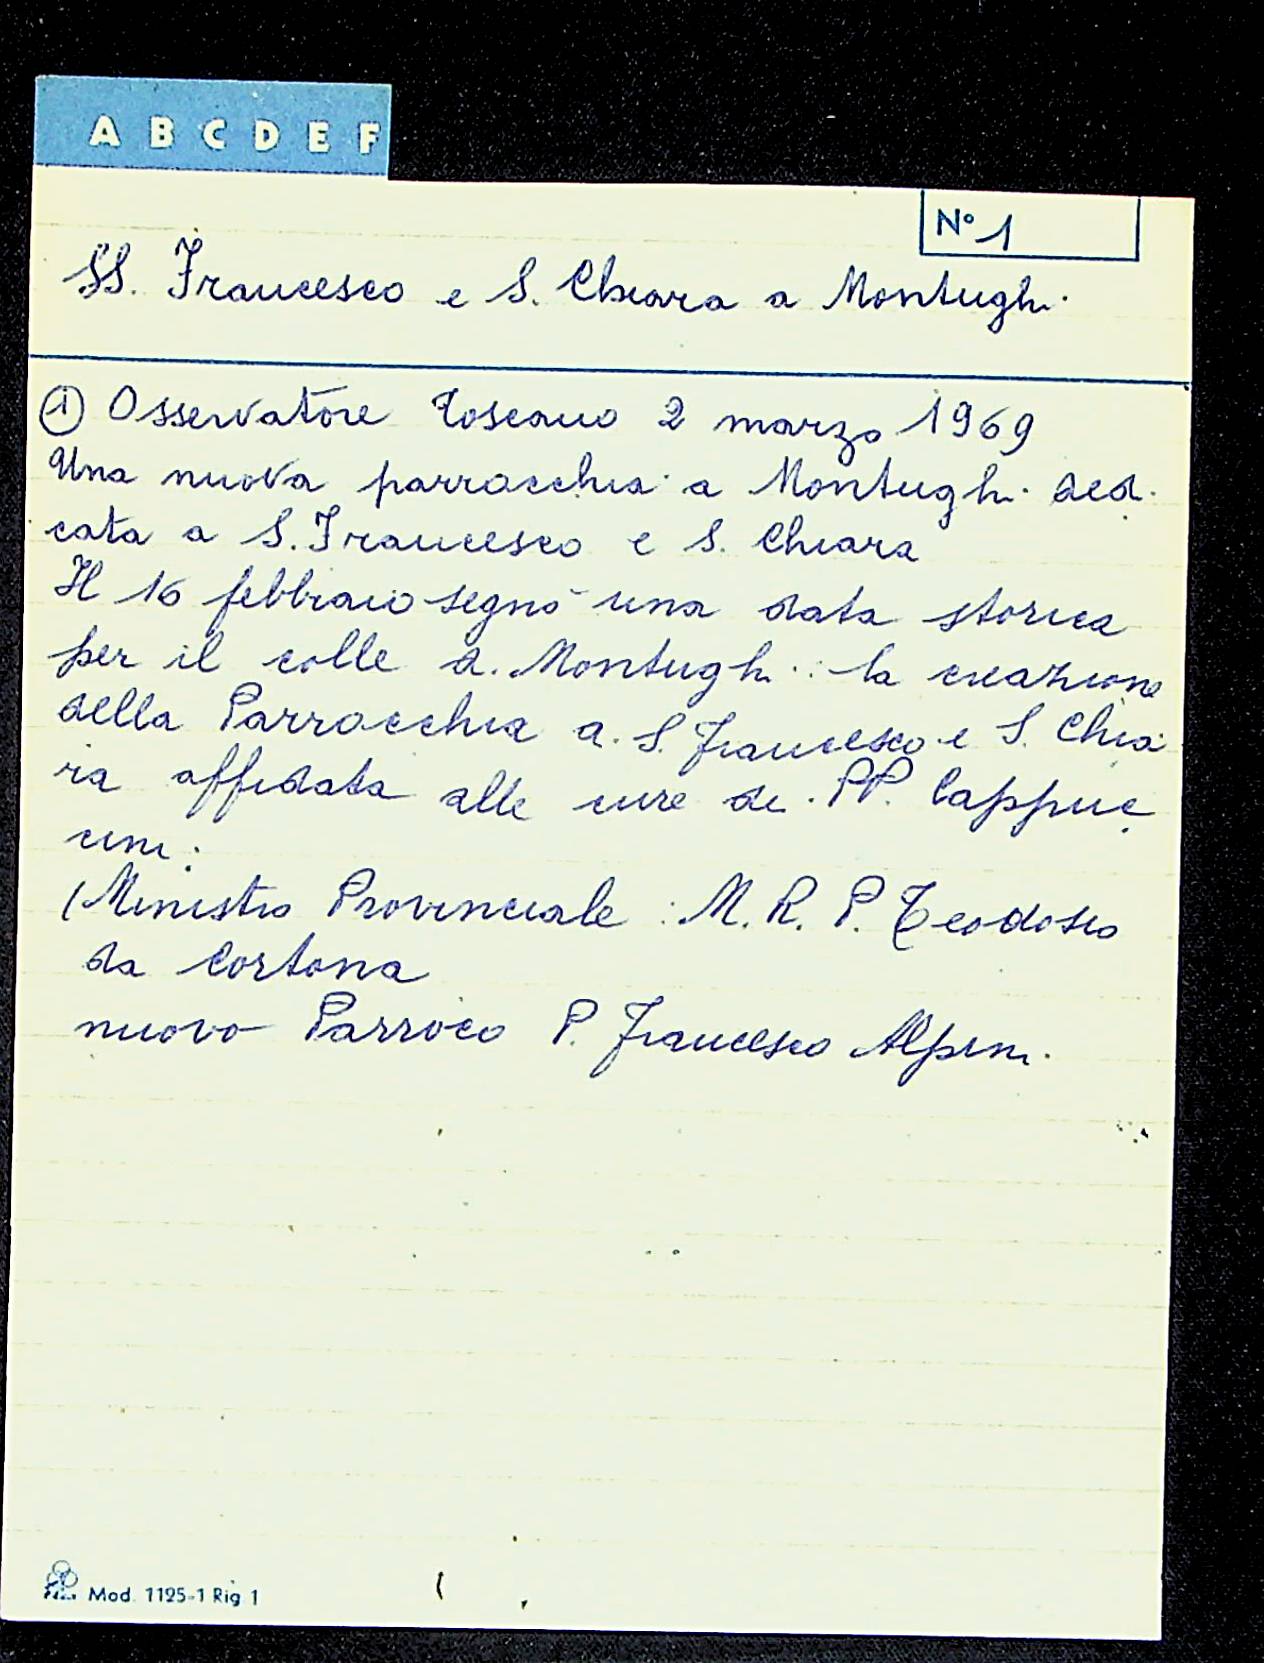 A B C D E F
N° 1
SS. Francesco e S. Chiara a Montughi
① Osservatore Toscano 2 marzo 1969
Una nuova parrocchia a Montughi dedi
cata a S. Francesco e S. Chiara
Il 16 febbraio segnò una data storica
per il colle di Montughi: la creazione
della Parrocchia di S. Francesco e S. Chia
ra affidata alle cure dei PP. Cappuc
cini:
(Ministro Provinciale: M. R. P. Teodosio
da Cortona
nuovo Parroco P. Francesco Alpini.
Mod. 1125-1 Rig 1